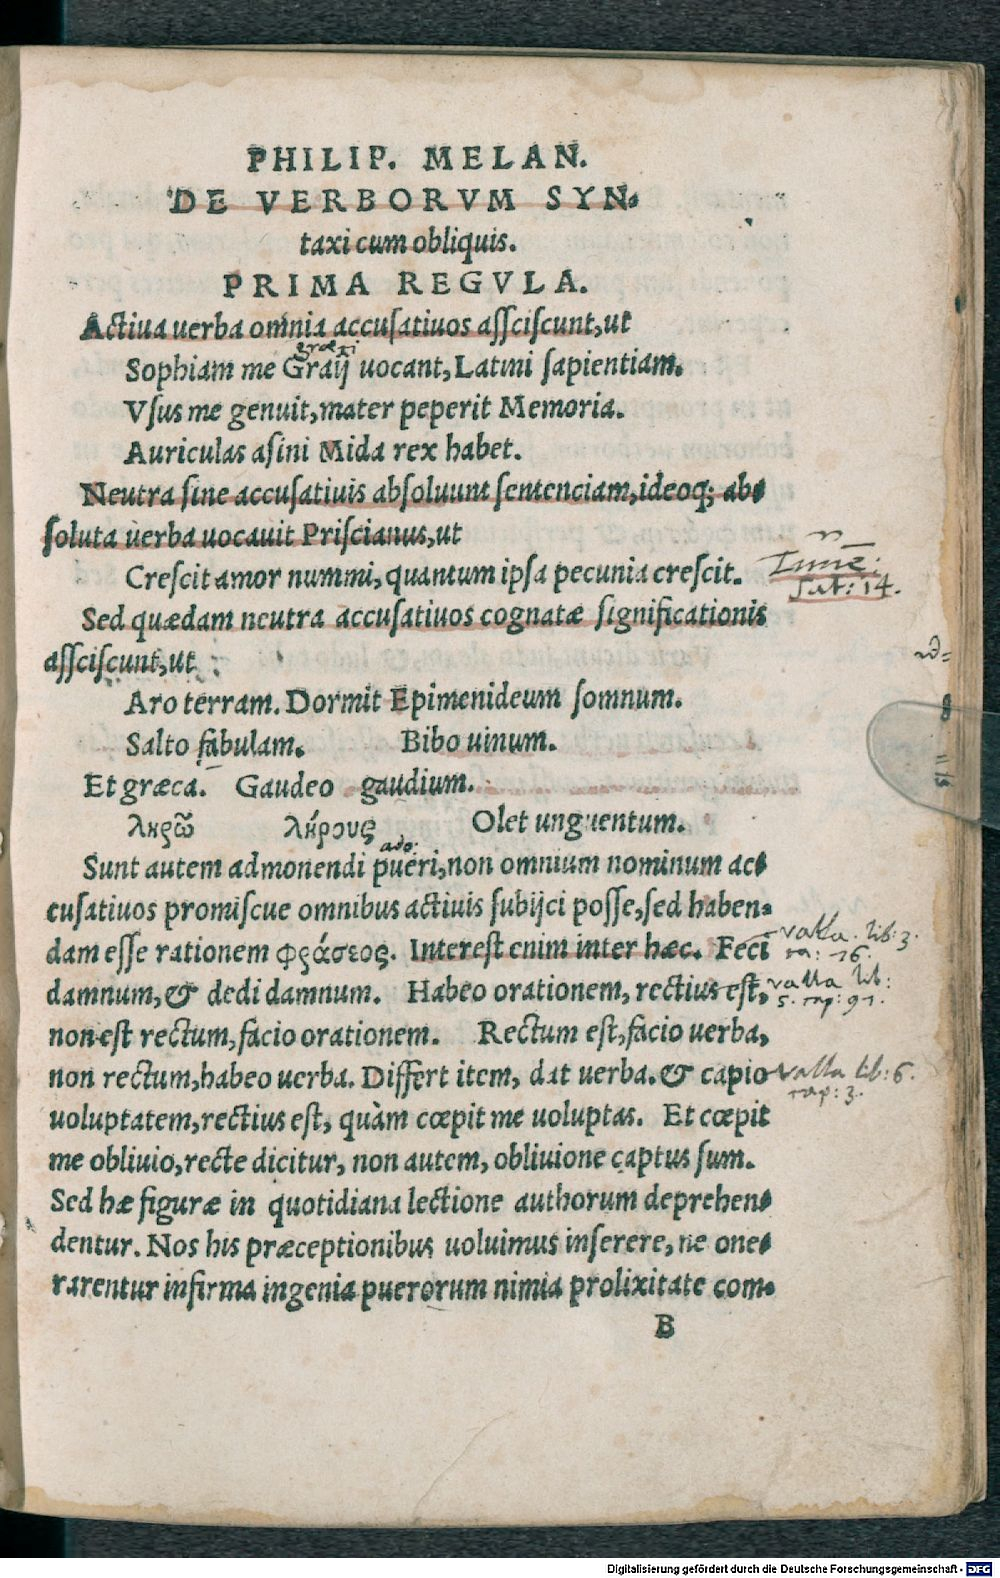 PHILIP. MELAN.
DE VERBORVM SYN-
taxi cum obliquis.
PRIMA REGVLA.
Actiua uerba omnia accusatiuos assciscunt,ut
græci
Sophiam me Graij uocant, Latini sapientiam.
Vsus me genuit,mater peperit Memoria.
Auriculas asini Mida rex habet.
Neutra sine accusatiuis absoluunt sentenciam,ideoq; ab-
soluta uerba uocauit Priscianus,ut
Crescit amor nummi, quantum ipsa pecunia crescit.
Sat: 14.
Sed quædam neutra accusatiuos cognatæ significationis
assciscunt,ut
Aro terram. Dormit Epimenideum somnum.
Salto fabulam. Bibo uinum.
Et græca. Gaudeo gaudium.
ληρῶ λήρους Olet unguentum.
ado:
Sunt autem admonendi pueri,non omnium nominum ac-
cusatiuos promiscue omnibus actiuis subijci posse,sed haben-
dam esse rationem φράσεος. Interest enim inter hæc. Feci
valla. lib: 3.
ca: 76.
damnum,& dedi damnum. Habeo orationem, rectius est,
valla lib:
5. cap: 91.
non est rectum,facio orationem. Rectum est,facio uerba,
non rectum,habeo uerba. Differt item, dat uerba.& capio
valla lib: 6.
cap: 3.
uoluptatem,rectius est, quàm cœpit me uoluptas. Et cœpit
me obliuio,recte dicitur, non autem, obliuione captus sum.
Sed hæ figuræ in quotidiana lectione authorum deprehen-
dentur. Nos his præceptionibus uoluimus inserere, ne one-
rarentur infirma ingenia puerorum nimia prolixitate com-
B
Digitalisierung gefördert durch die Deutsche Forschungsgemeinschaft - DFG